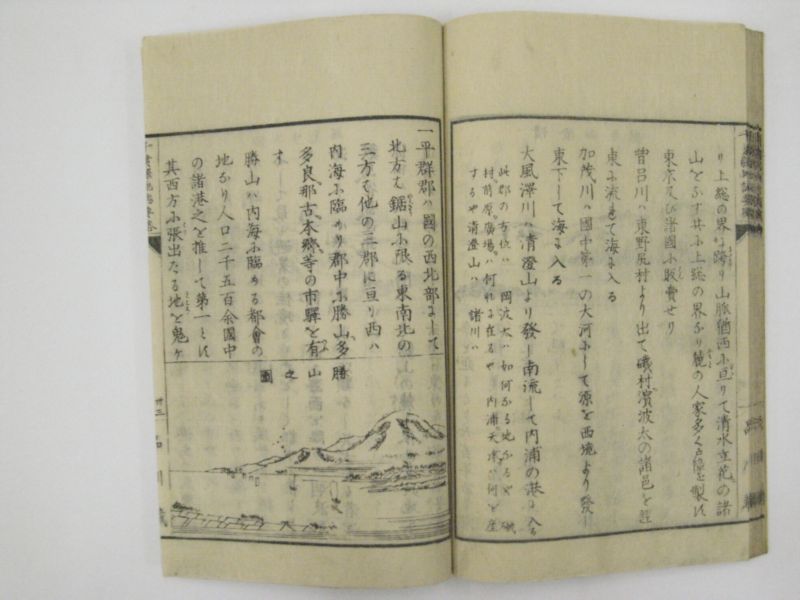 り上総の界に跨り山脈猶西に亘りて清水立花の諸
山となす共に上総の界なり麓の人家多く戸障を製し
東京及ひ諸國に販賣せり
曽呂川ハ東野尻村より出て磯村濱波太の諸邑を経
東に流きて海に入る
加茂川ハ國中第一の大河にして源を西境より發し
東下して海に入る
大風澤川ハ清澄山より發し南流して内浦の港に入る
此郡の方位ハ 岡波太ハ如何なる地なるや 磯
村前原廣場ハ何れに在るや 内浦天津ハ何を産
するや清澄山ハ 諸川ハ
一平群郡ハ國の西北部にして
北方は鋸山に限る東南北の
三方は他の三郡に亘り西ハ
内海に臨めり郡中に勝山多
多良那古本郷等の市驛を有
す
勝山ハ内海に臨める都會の
地なり人口二千五百余國中
の諸港之を推して第一とす
其西方に張出たる地を鬼ヶ
勝山之圖
廿三